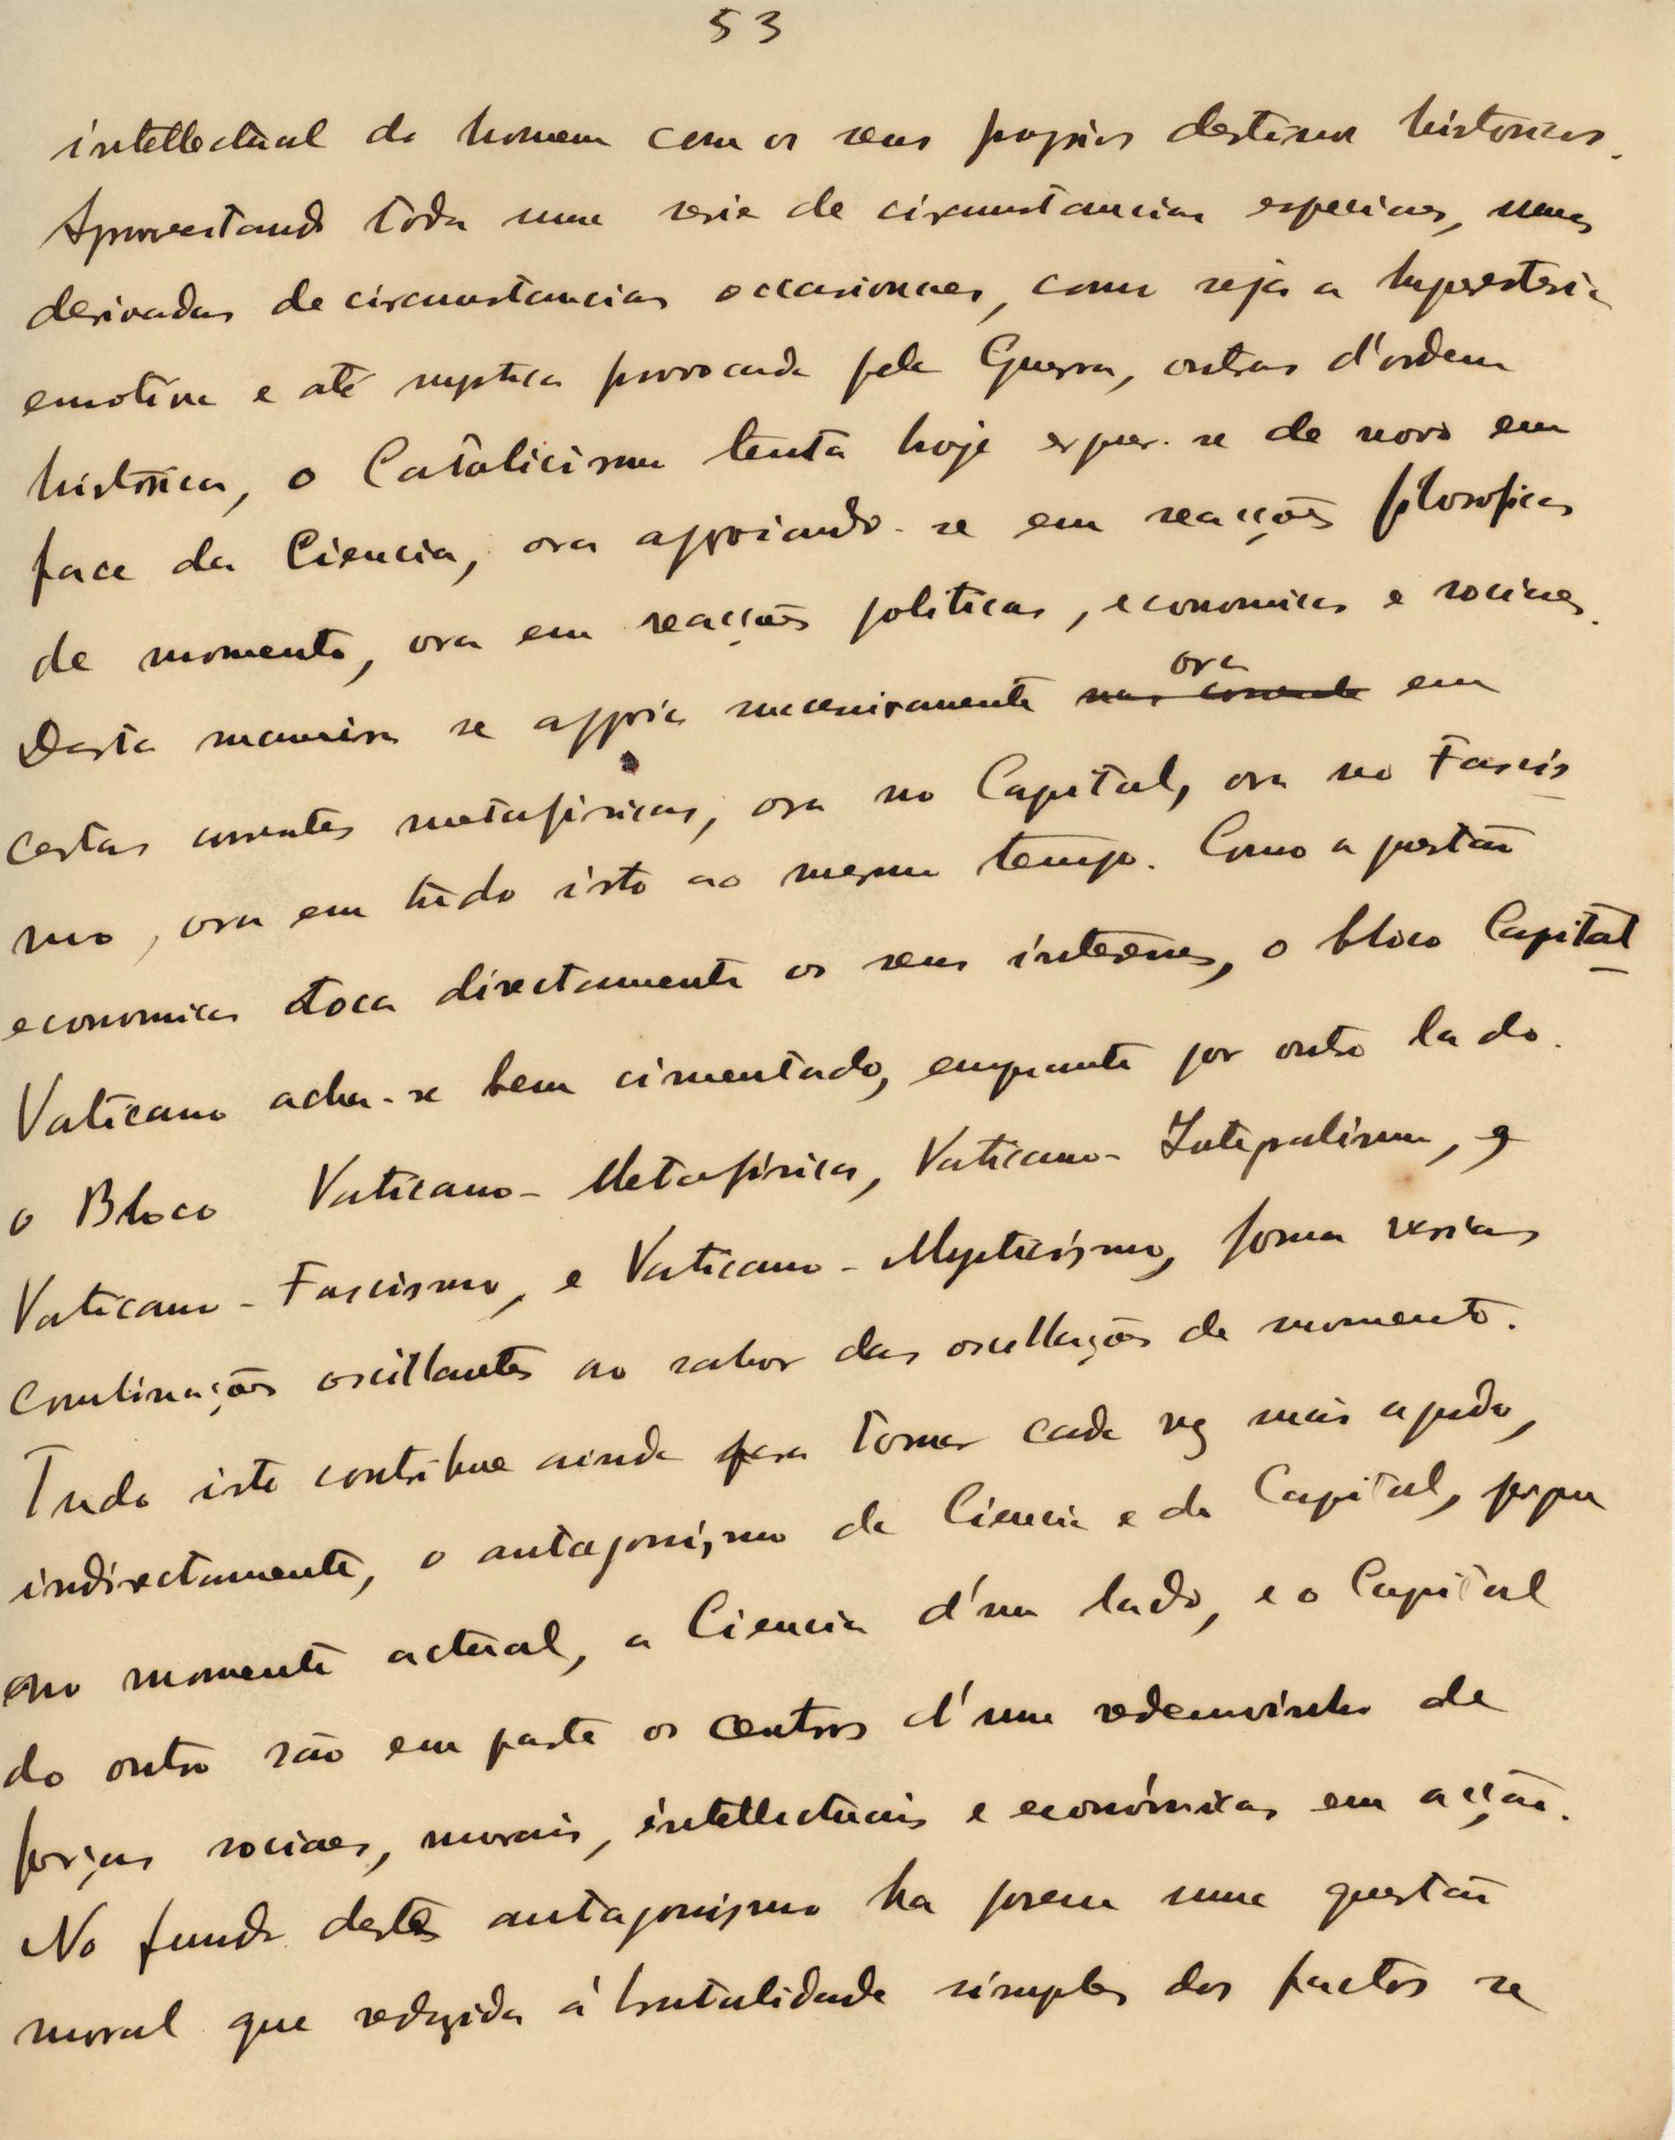 53
intellectual do homem com os seus proprios destinos historicos.
Aproveitando toda uma serie de circumstancias especiaes, umas
derivadas de circumstancias occasionaes, como seja a hyperesteria
emotiva e até mystica provocada pela Guerra, outras d'ordem
historica, o Catolicismo tenta hoje erguer-se de novo em
face da Ciencia, ora appoiando-se em reacções filosoficas
de momento, ora em reacções politicas, economicas e sociaes.
Desta maneira se appoia sucessivamente nas corrente ora em
certas correntes metafisicas, ora no Capital, ora no Fascis
mo, ora em tudo isto ao mesmo tempo. Como a questão
economica toca directamente os seus interesses, o bloco Capital
Vaticano acha-se bem cimentado, emquanto por outro lado.
o Bloco Vaticano-Metafisica, Vaticano-Integralismo,
Vaticano-Fascismo, e Vaticano-Mysticismo, forma varias
combinações oscillantes ao sabor das oscillações de momento.
Tudo isto contribue ainda para tornar cada vez mais agudo,
indirectamente, o antagonismo da Ciencia e do Capital, porque
no momento actual, a Ciencia d'um lado, e o Capital
do outro são em parte os centros d'um redemoinho de
forças sociaes, morais, intellectuais e económicas em acção.
No fundo deste antagonismo ha porem uma questão
moral que reduzida á brutalidade simples dos factos se